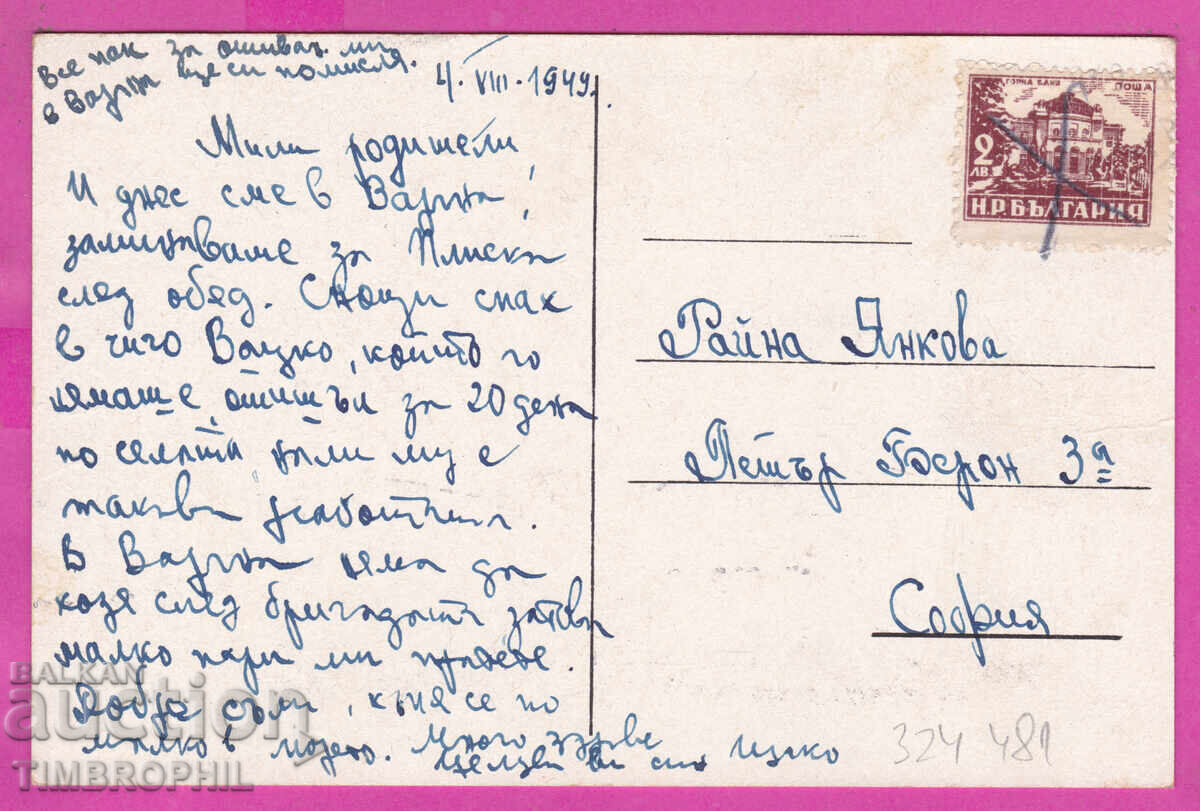 Все пак за отивам ми
в Варна ще си помисля.
4. VIII. 1949.
Мили родители,
И днес сме в Варна,
заминаваме за Плиска
след обяд. Снощи спах
в чичо Вацко, който го
нямаше, отишъл за 20 дена
по селата нали му е
такава работата.
В Варна няма да
след бригадата затва
малко пари ми
Добре съм, къпя се по
малко в морето. Много здраве
Целува ви син Ицко
ГОРНА БАНЯ ПОЩА
2 ЛВ.
Н.Р.БЪЛГАРИЯ
Райна Янкова
Петър 3а
София
324 481
BALKAN
auction
TIMBROPHIL